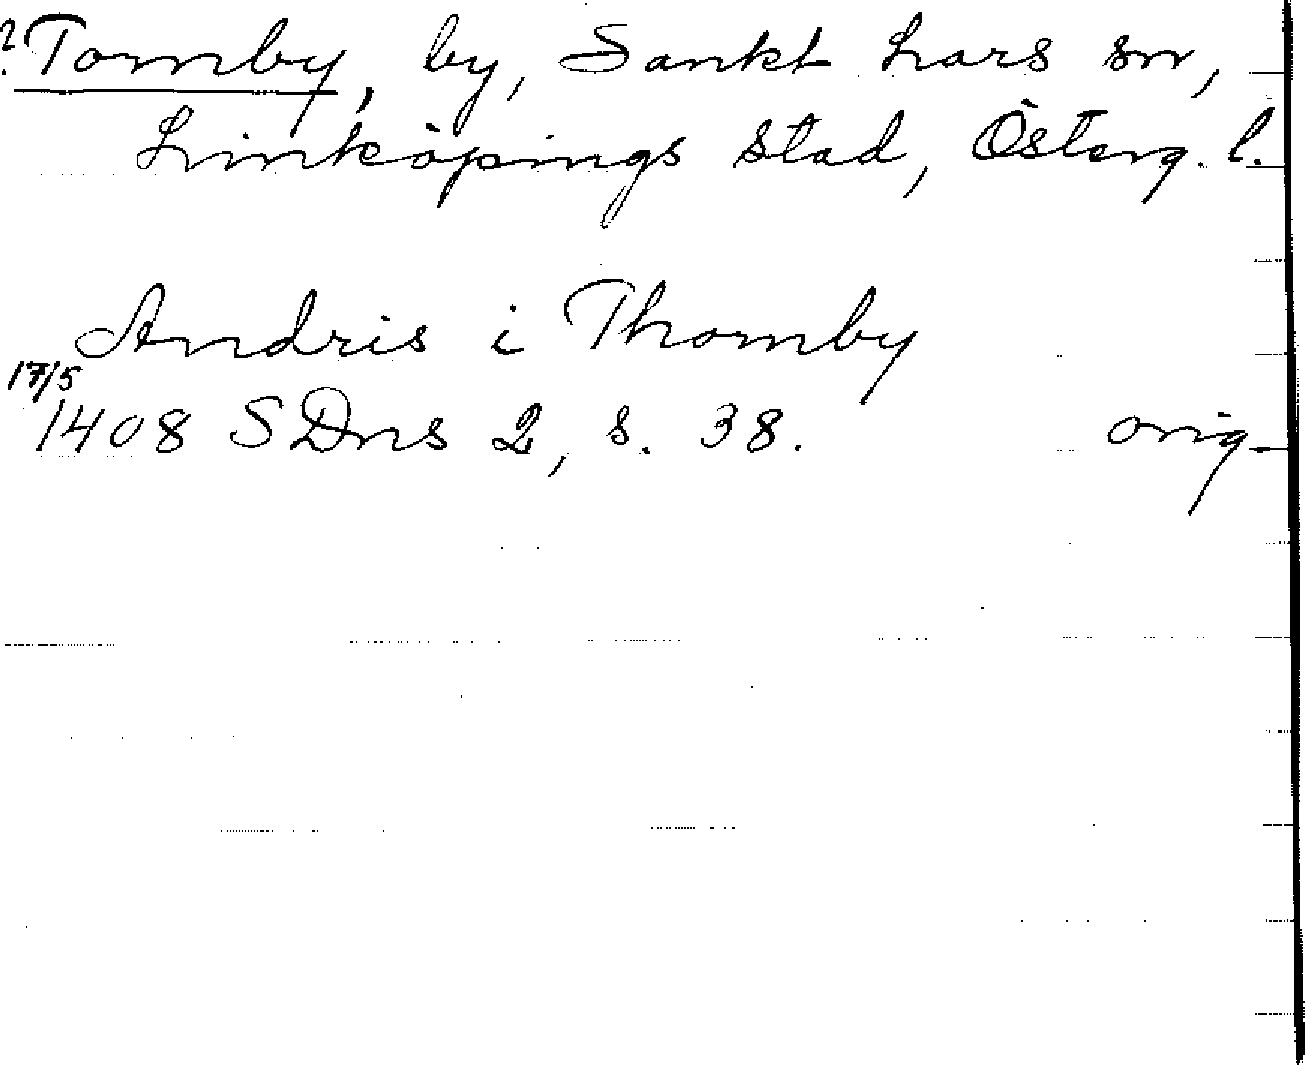 ? Tornby, by, Sankt Lars sn,
Linköpings stad, Österg. l.
Andris i Thornby
17/5
1408 SDns 2, s. 38. orig.